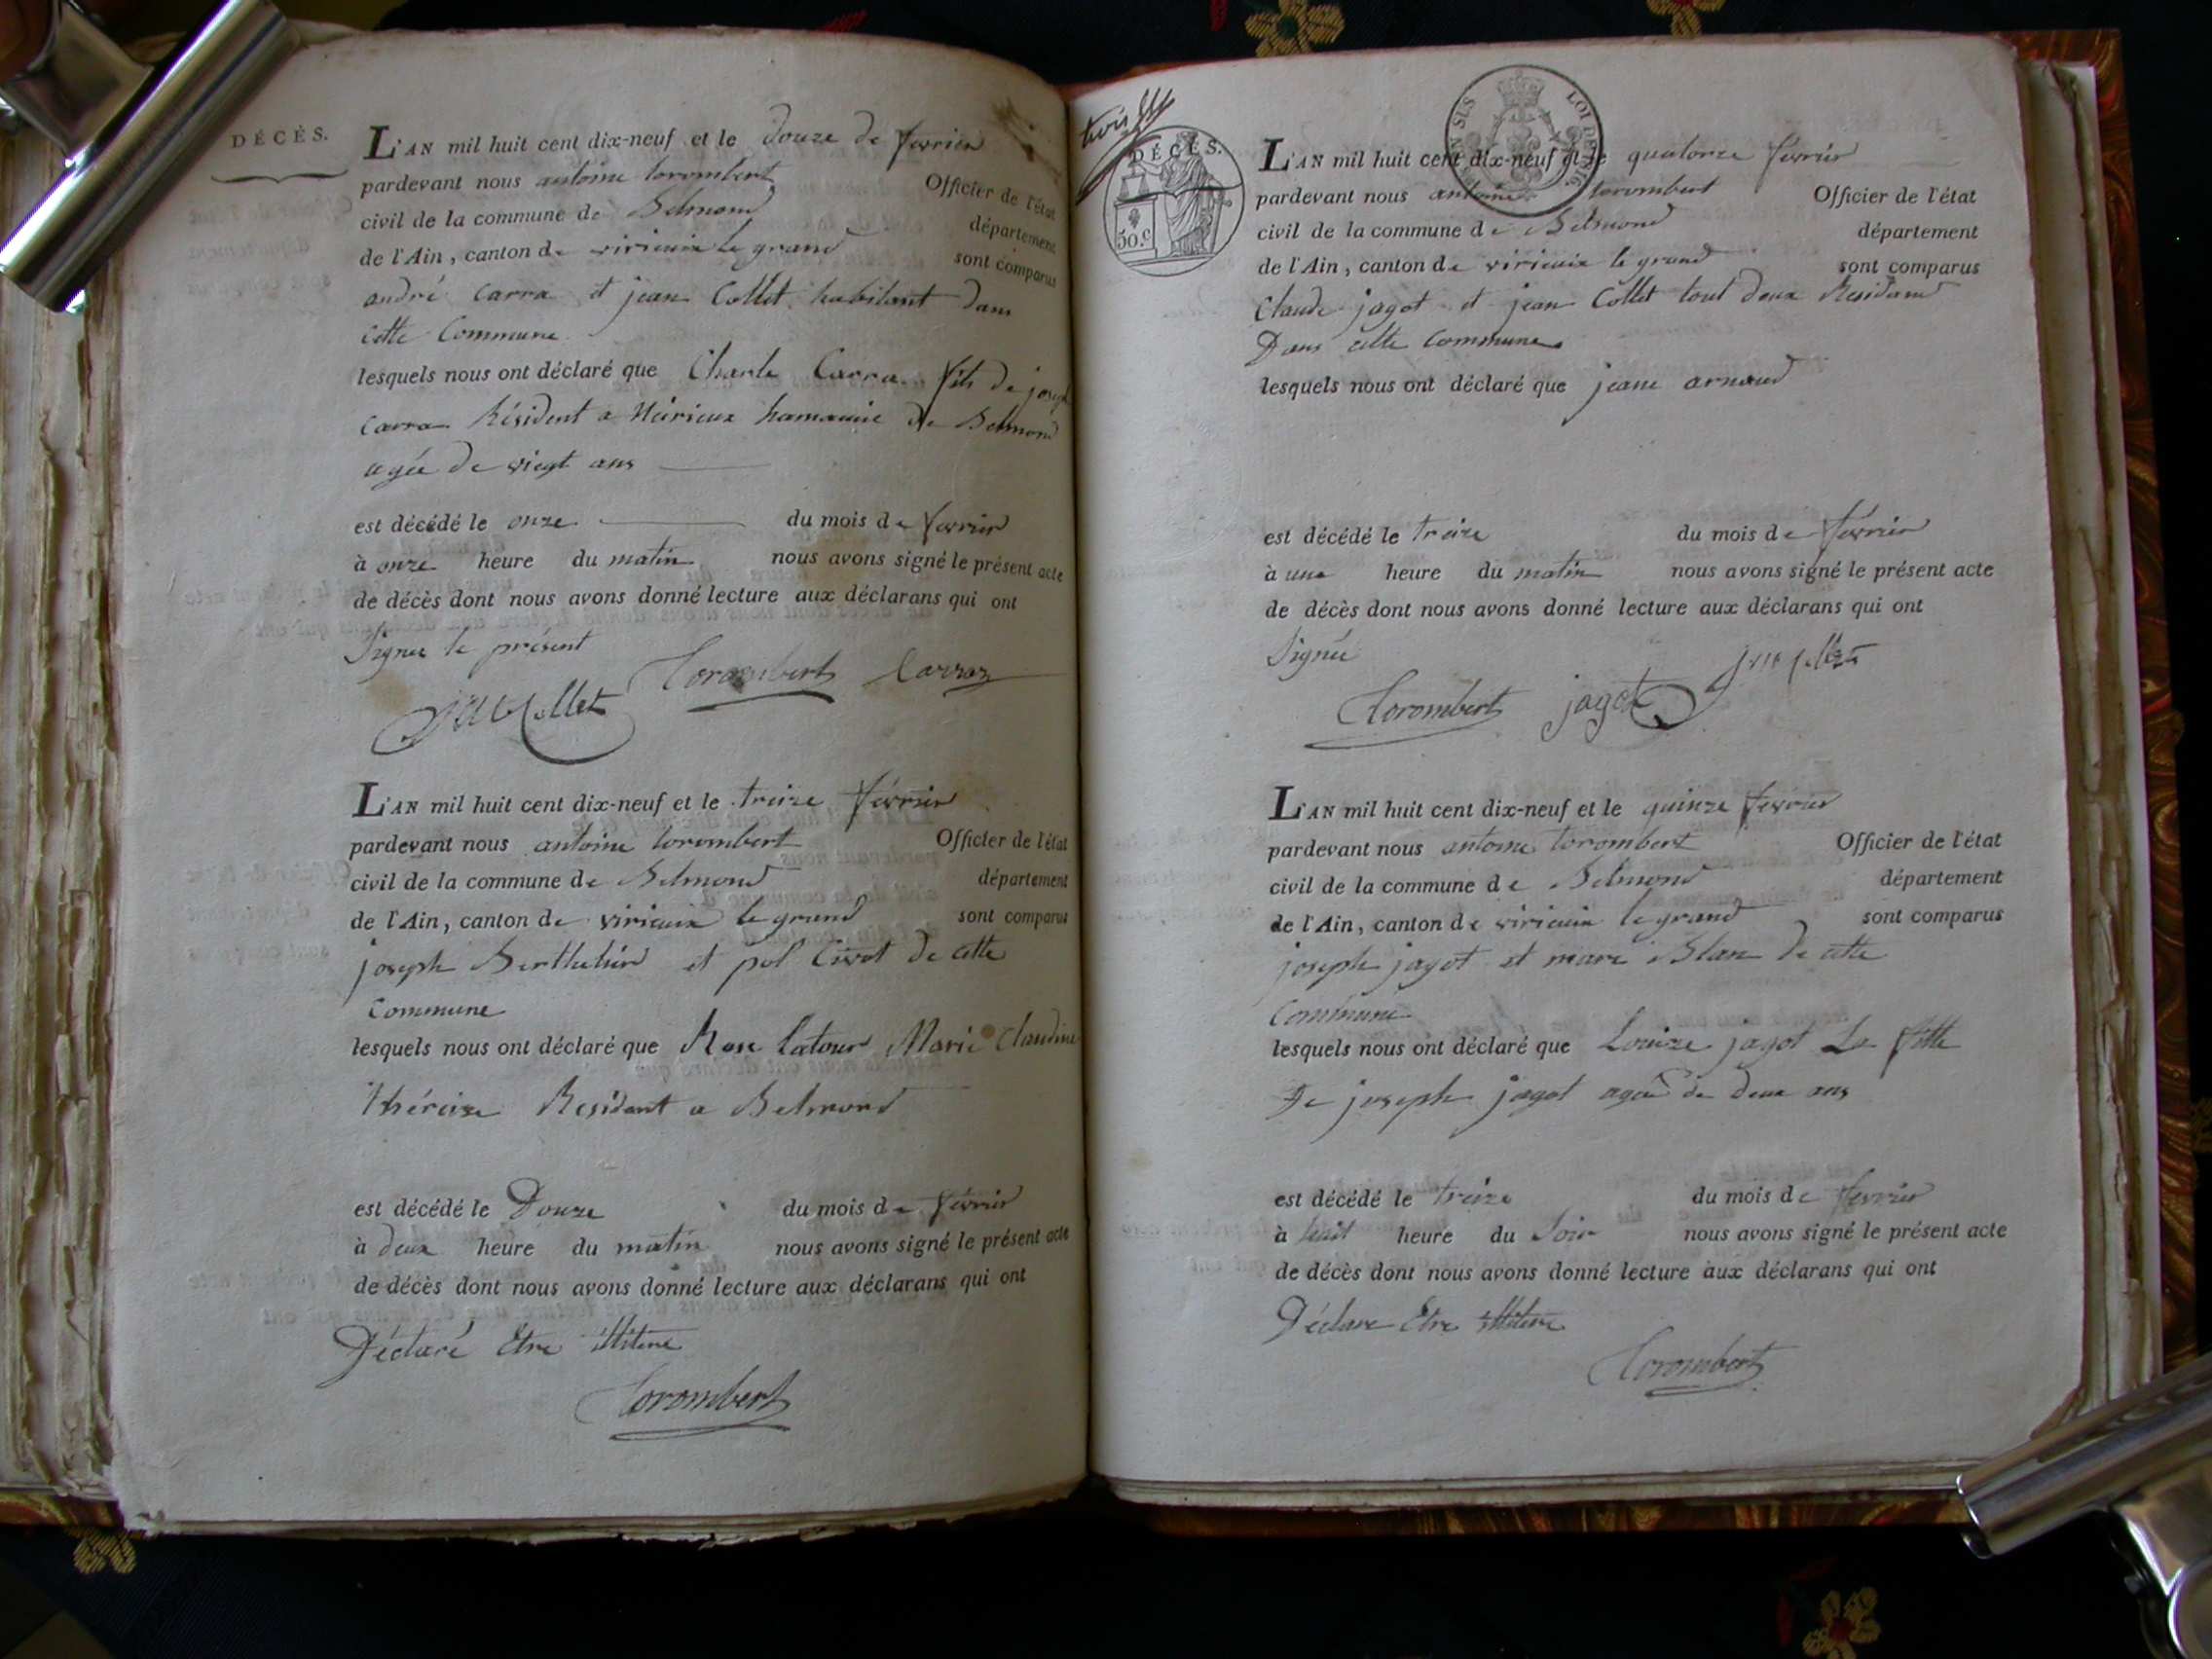 DÉCÈS.
L'AN mil huit cent dix-neuf et le douze de fevrier
pardevant nous antoine torombert Officier de l'état
civil de la commune de Belmond département
de l'Ain, canton de virieuix le grand sont comparus
andré Carra et jean Collet habitant dans
cette Commune
lesquels nous ont déclaré que Charle Carra fils de joseph
Carra Résident a de Belmond
agée de vingt ans
est décédé le onze du mois de fevrier
à onze heure du matin nous avons signé le présent acte
de décès dont nous avons donné lecture aux déclarans qui ont
Signer le présent
Torombert Carraz
Collet
L'AN mil huit cent dix-neuf et le treize février
pardevant nous antoine torombert Officier de l'état
civil de la commune de Belmond département
de l'Ain, canton de virieuix le grand sont comparus
joseph et pol de cette
Commune
lesquels nous ont déclaré que Rose Latour Marie Claudine
Théreise Resident a Belmond
est décédé le Douze du mois de février
à deux heure du matin nous avons signé le présent acte
de décès dont nous avons donné lecture aux déclarans qui ont
Déclaré Etre illitere
Torombert
trois
DÉCÈS.
50.c
L'AN mil huit cent dix-neuf et le quatorze février
pardevant nous antoine torombert Officier de l'état
civil de la commune de Belmond département
de l'Ain, canton de virieuix le grand sont comparus
Claude jagot et jean Collet tout deux Residand
Dans cette commune
lesquels nous ont déclaré que jeane arnaud
est décédé le treize du mois de février
à une heure du matin nous avons signé le présent acte
de décès dont nous avons donné lecture aux déclarans qui ont
Signée
Torombert jagot
L'AN mil huit cent dix-neuf et le quinze fevrier
pardevant nous antoine torombert Officier de l'état
civil de la commune de Belmond département
de l'Ain, canton de virieuix le grand sont comparus
joseph jagot et marc Blan de cette
Commune
lesquels nous ont déclaré que Louize jagot La fille
De joseph jagot agée de deux ans
est décédé le treize du mois de fevrier
à huit heure du Soir nous avons signé le présent acte
de décès dont nous avons donné lecture aux déclarans qui ont
Déclare Etre illitere
Torombert